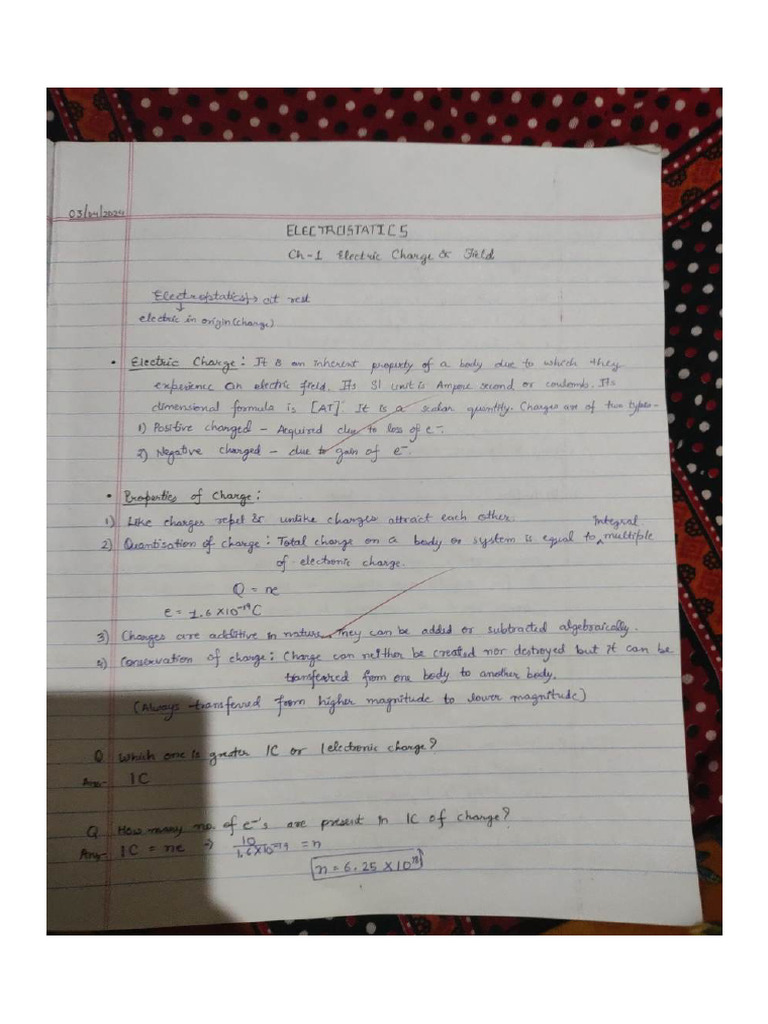 03/04/2024
ELECTROSTATICS
Ch-1 Electric Charge & Field
Electrostatics → at rest
↓
electric in origin (charge)
• Electric Charge : It is an inherent property of a body due to which they
experience an electric field. Its SI unit is Ampere second or coulomb. Its
dimensional formula is [AT]. It is a scalar quantity. Charges are of two types-
1) Positive charged - Acquired due to loss of e⁻.
2) Negative charged - due to gain of e⁻.
• Properties of Charge :
1) Like charges repel & unlike charges attract each other.
Integral
2) Quantisation of charge : Total charge on a body or system is equal to ^ multiple
of electronic charge.
Q = ne
e = 1.6 × 10⁻¹⁹ C
3) Charges are additive in nature. They can be added or subtracted algebraically.
4) Conservation of charge : Charge can neither be created nor destroyed but it can be
transferred from one body to another body.
(Always transferred from higher magnitude to lower magnitude)
Q Which one is greater 1C or 1 electronic charge?
Ans- 1C
Q How many no. of e⁻'s are present in 1C of charge?
Ans- 1C = ne ⇒ 10/1.6×10⁻¹⁹ = n
n = 6.25 × 10¹⁸